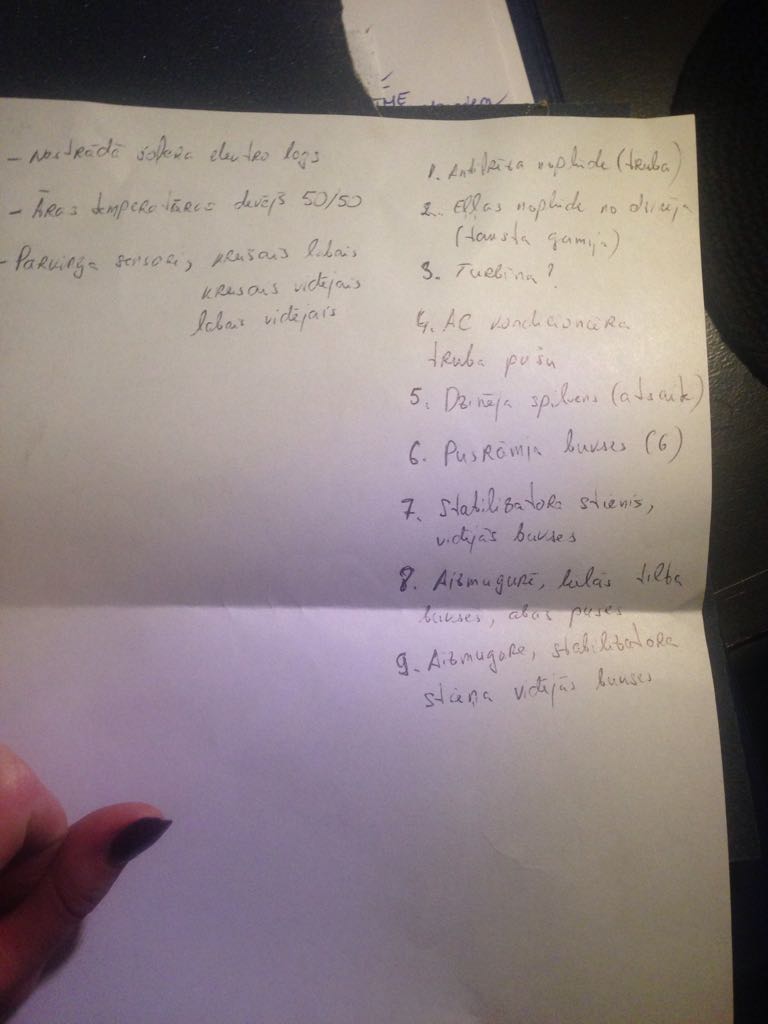 ME
- nestrādā šofera elektro logs
- Āras temperatūras devējš 50/50
- Parkinga sensori, kreisais labais
kreisais vidējais
labais vidējais
1. Antifrīza noplūde (truba)
2. Eļļas noplūde no dzinēja
(gumija)
3. Turbīna?
4. AC kondicioniera
truba pušu
5. Dzinēja spilvens (atsaite)
6. Pusrāmja bukses (6)
7. Stabilizatora stienis,
vidējās bukses
8. Aizmugurē, tilta
bukses, abas puses
9. Aizmugure, stabilizatora
stieņa vidējās bukses